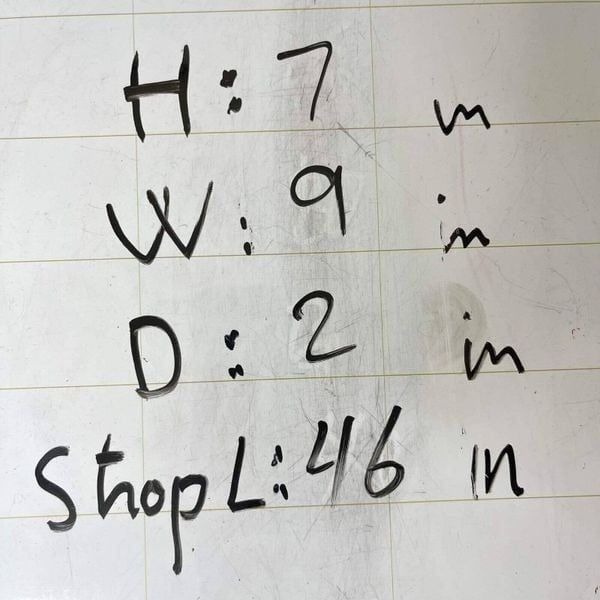 H: 7 in
W: 9 in
D: 2 in
Stnop L: 46 in